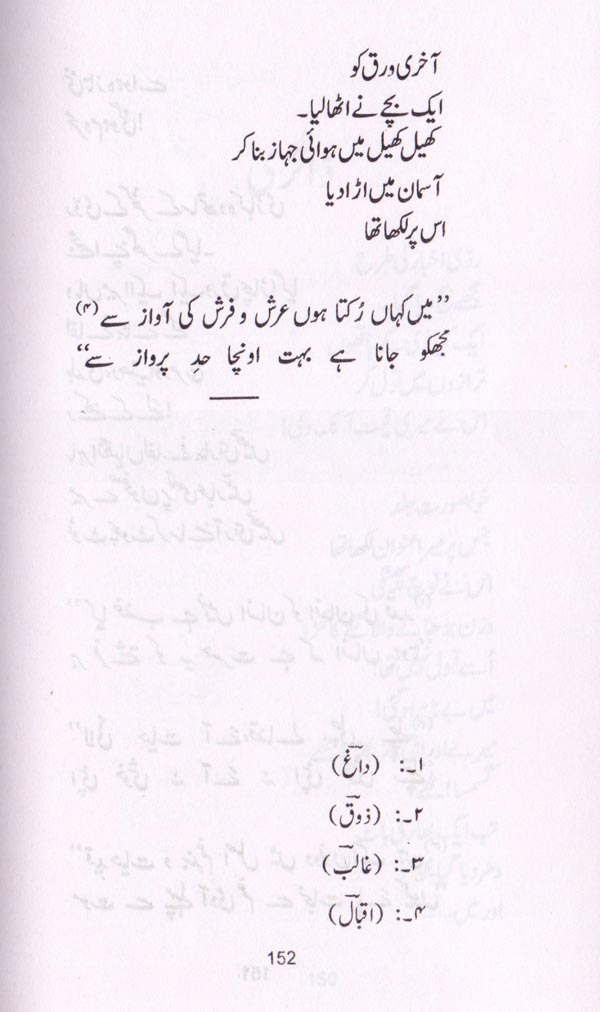 آخری ورق کو
ایک بچے نے اٹھالیا۔
کھیل کھیل میں ہوائی جہاز بنا کر
آسمان میں اڑادیا
اس پر لکھا تھا
”میں کہاں رُکتا ہوں عرش و فرش کی آواز سے (۴)
مجھکو جانا ہے بہت اونچا حدِ پرواز سے“
۱۔: (داغؔ)
۲۔: (ذوقؔ)
۳۔: (غالبؔ)
۴۔: (اقبالؔ)
152